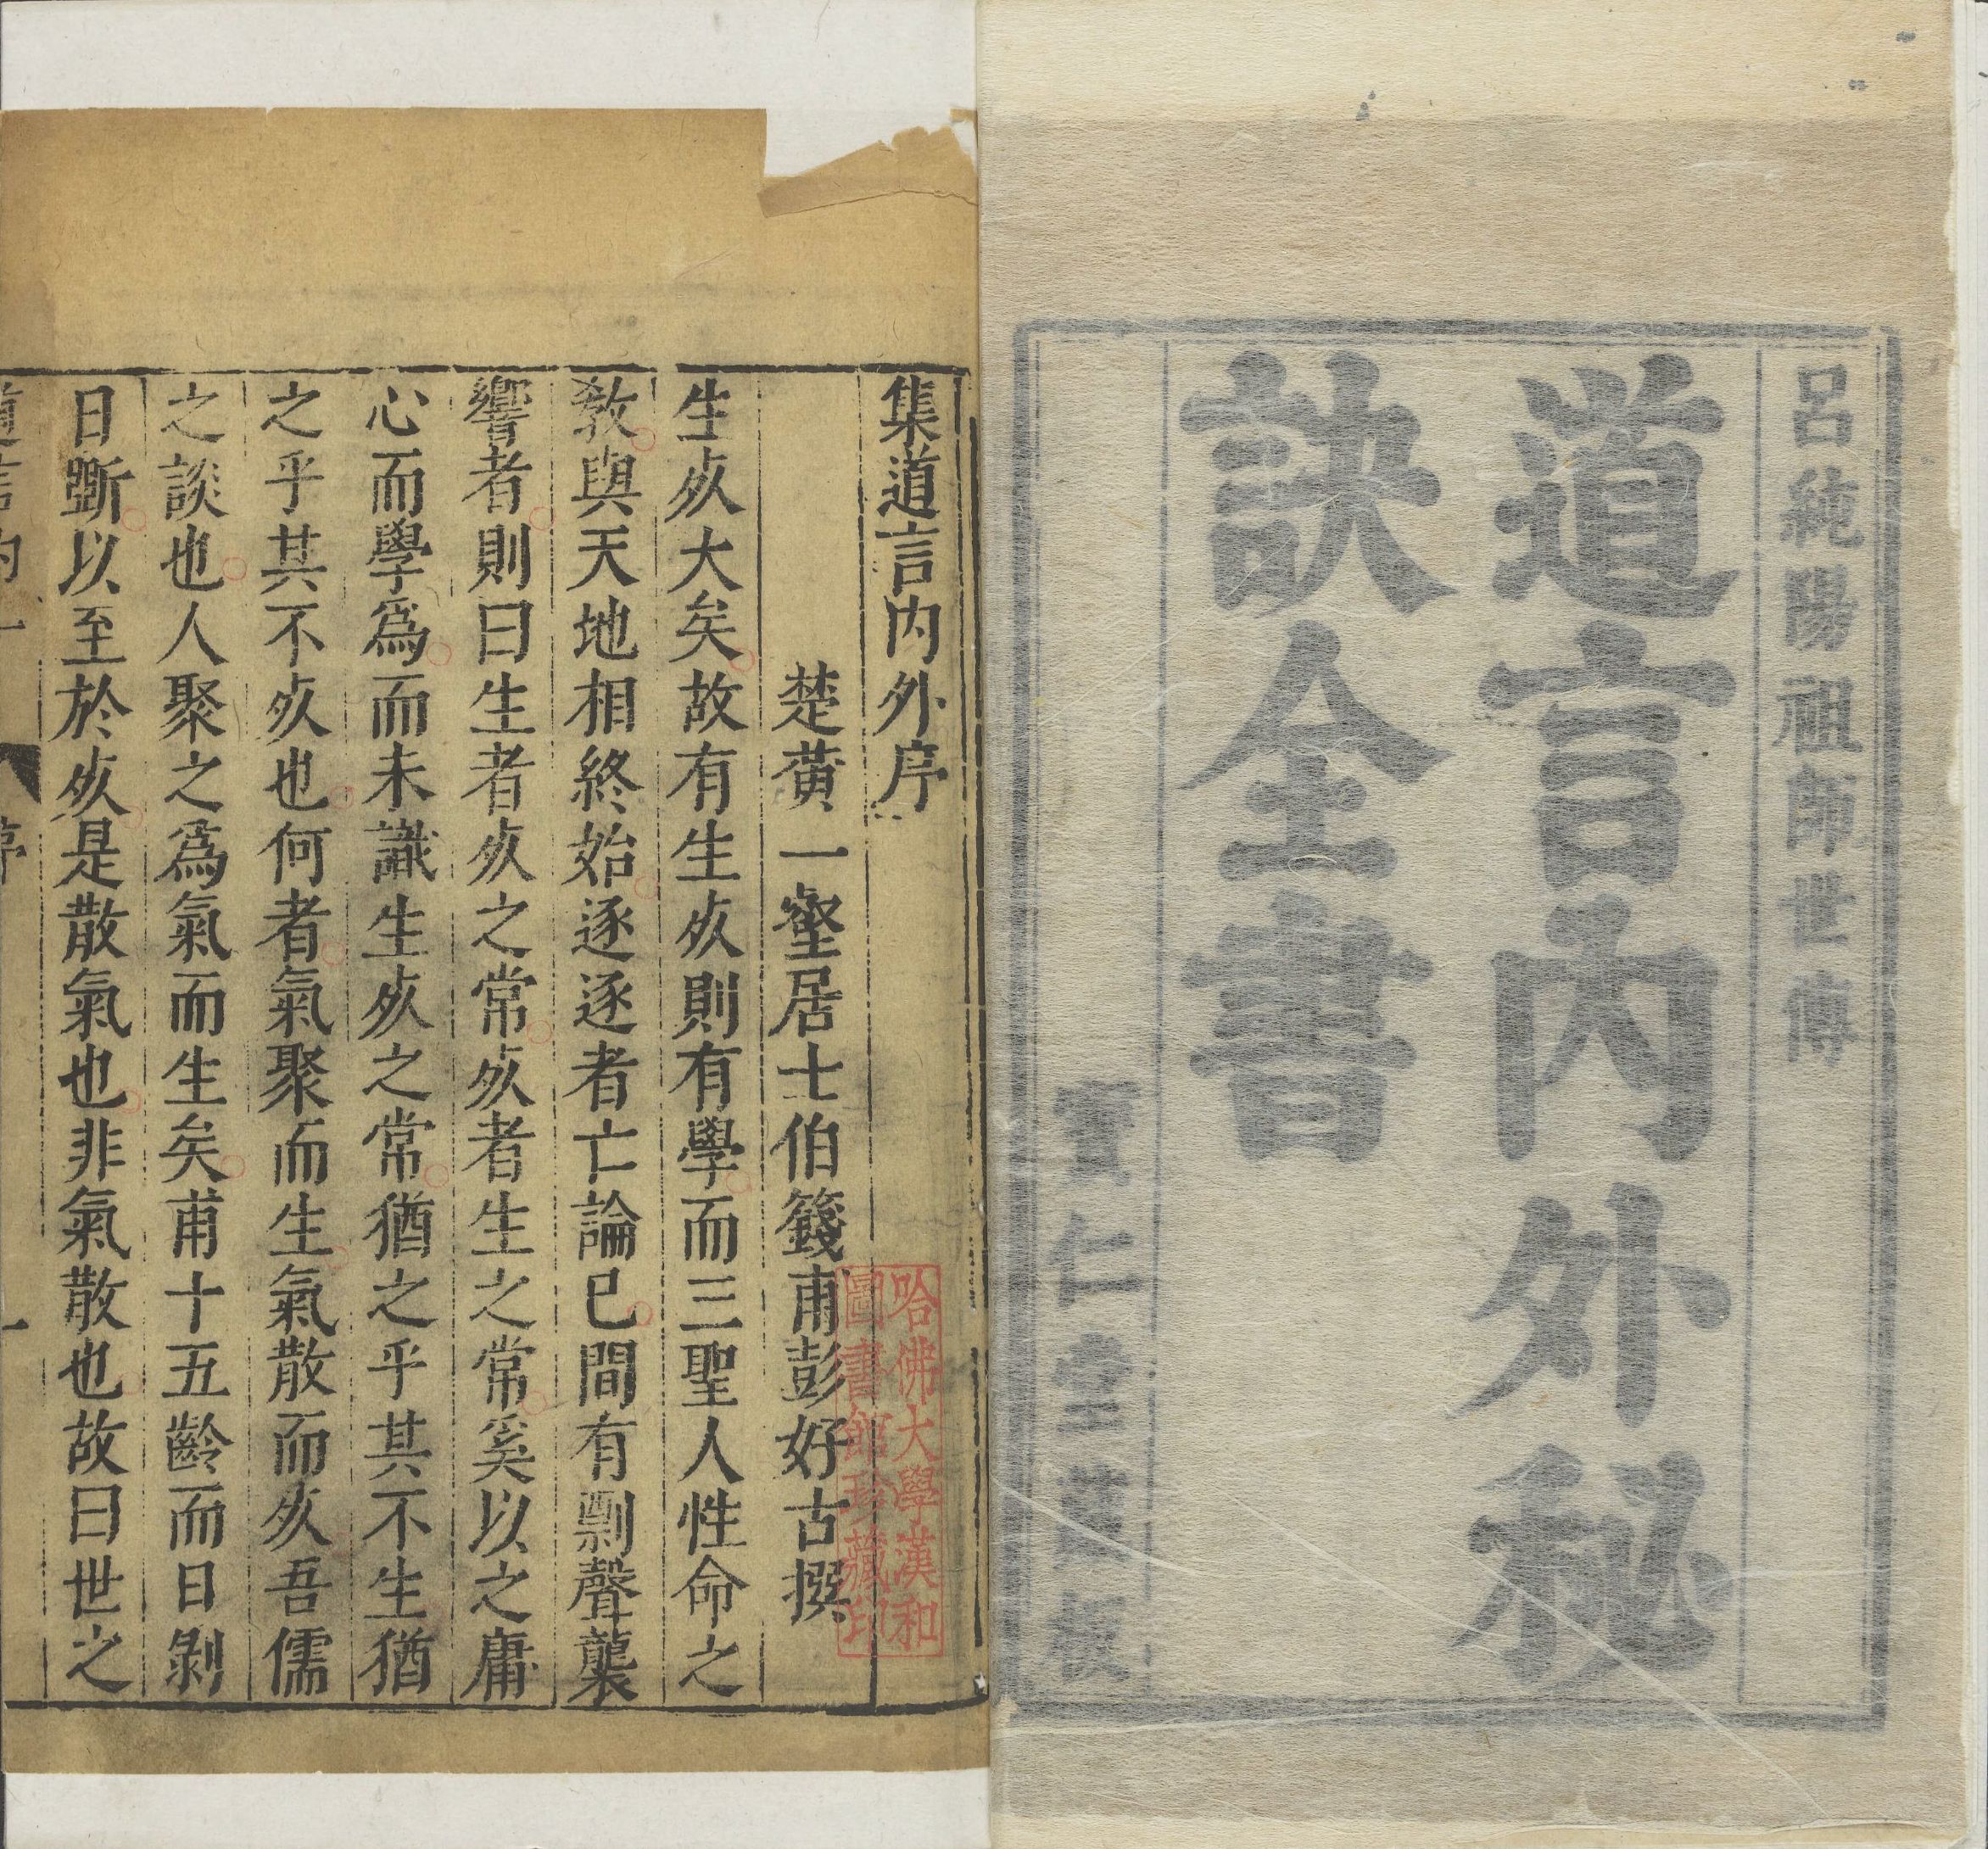 呂純陽祖師世傳
道言內外秘
訣全書
寶仁堂藏板
集道言内外序
楚黄一壑居士伯籛甫彭好古撰
生㱙大矣故有生㱙則有學而三聖人性命之
教與天地相終始逐逐者亡論已間有剽聲襲
響者則曰生者㱙之常㱙者生之常奚以之庸
心而學爲而未識生㱙之常猶之乎其不生猶
之乎其不㱙也何者氣聚而生氣散而㱙吾儒
之談也人聚之爲氣而生矣甫十五齡而日剝
日斲以至於㱙是散氣也非氣散也故曰世之
道言内一
序
一
哈佛大學漢和
圖書館珍藏印